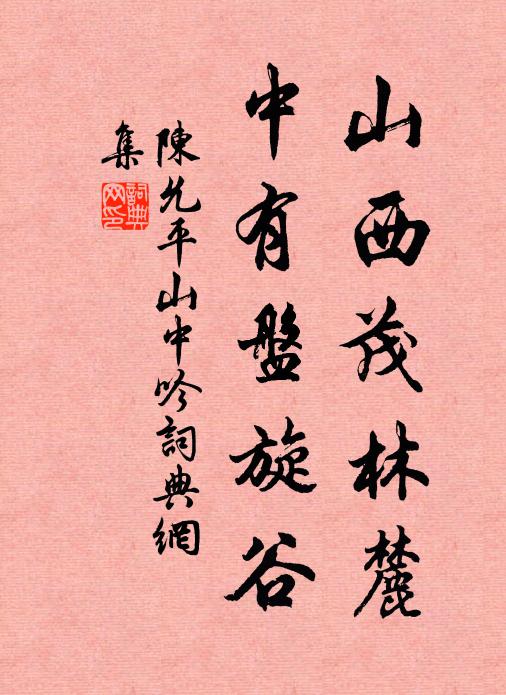 山西茂林麓
中有盤旋谷
陳允平山中吟詞典網
集
詞典
网印